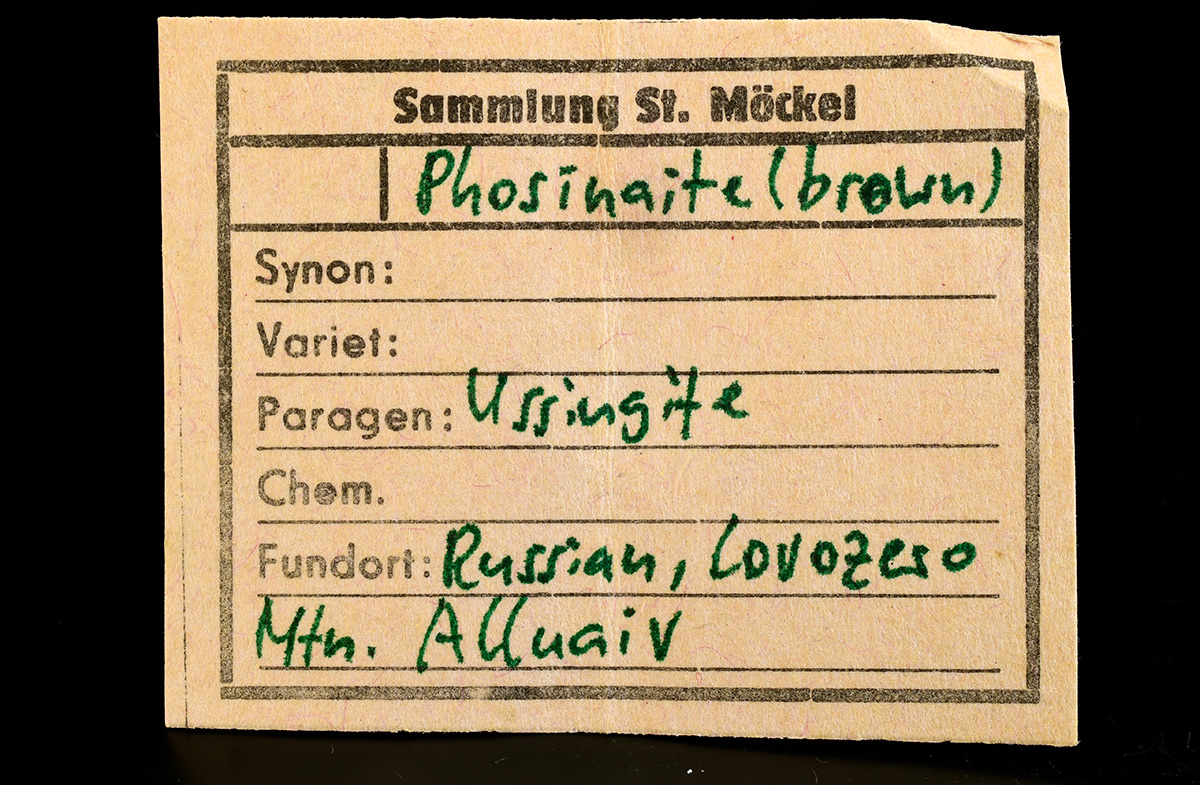 Sammlung St. Möckel
Phosinaite (brown)
Synon:
Variet:
Paragen: Ussingite
Chem.
Fundort: Russian, Lovozero
Mtn. Alluaiv